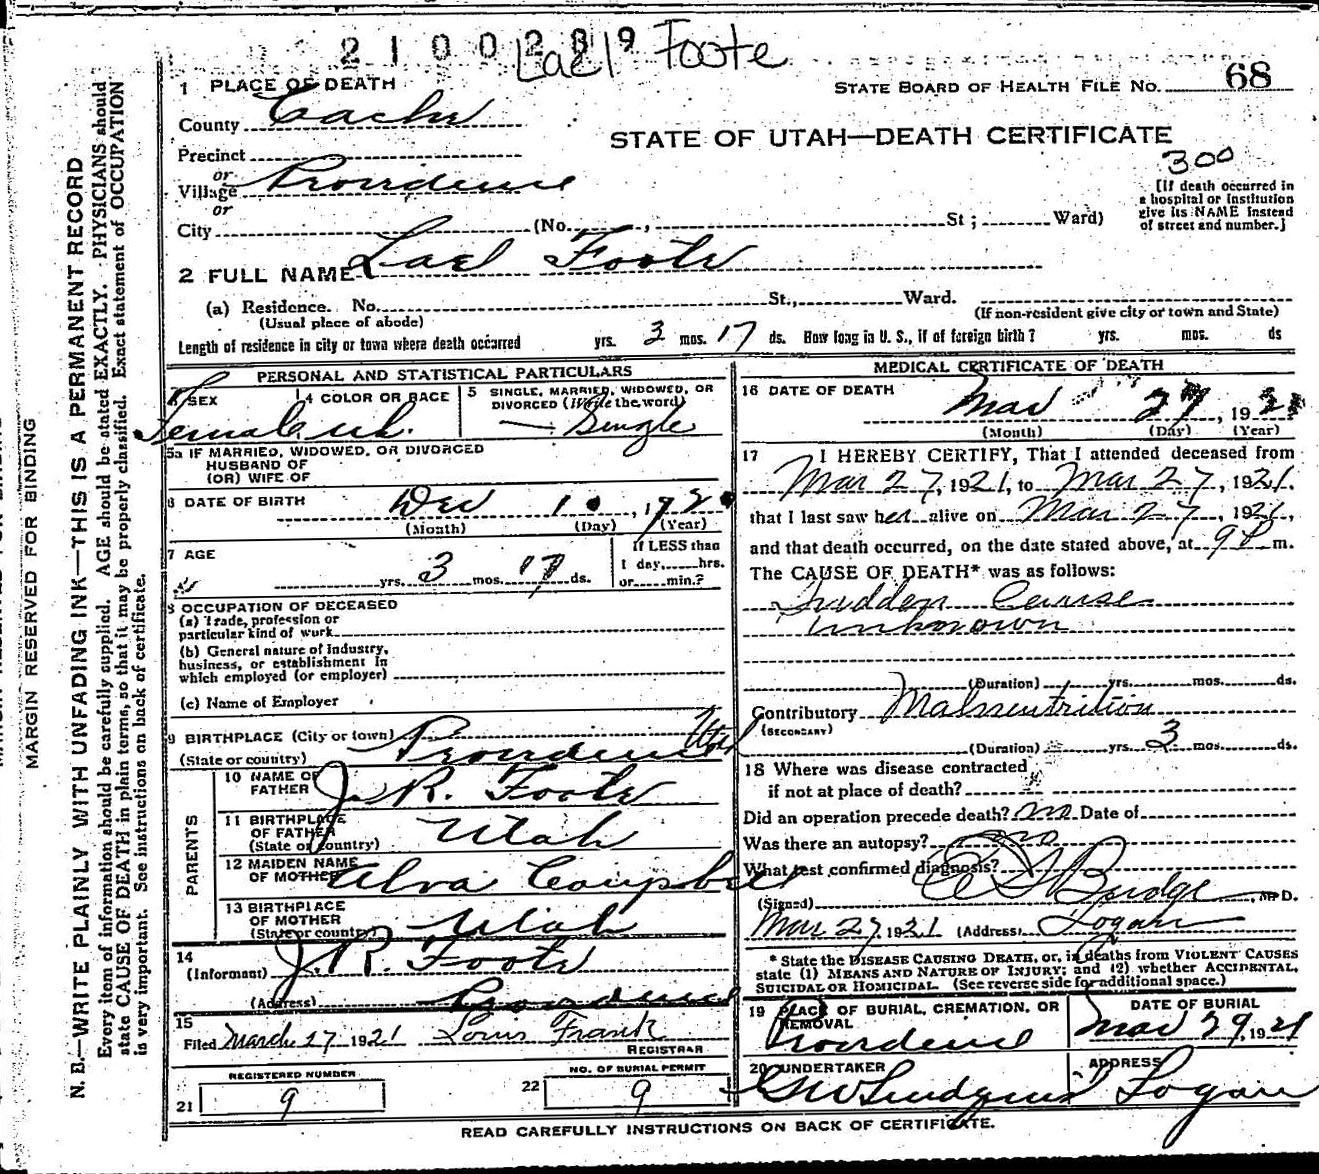 2100289
Lael Foote
1 PLACE OF DEATH
STATE BOARD OF HEALTH FILE No. 68
County Cache
STATE OF UTAH—DEATH CERTIFICATE
Precinct
300
or
Village Providence
[If death occurred in
a hospital or institution
give its NAME instead
of street and number.]
or
City (No. , St ; Ward)
2 FULL NAME Lael Foote
(a) Residence. No. St., Ward.
(Usual place of abode)
(If non-resident give city or town and State)
Length of residence in city or town where death occurred yrs. 3 mos. 17 ds. How long in U. S., if of foreign birth ? yrs. mos. ds
PERSONAL AND STATISTICAL PARTICULARS
3 SEX
4 COLOR OR RACE
5 SINGLE, MARRIED, WIDOWED, OR
DIVORCED (Write the word)
Female Wh. Single
5a IF MARRIED, WIDOWED, OR DIVORCED
HUSBAND OF
(OR) WIFE OF
6 DATE OF BIRTH Dec 10, 1920
(Month) (Day) (Year)
7 AGE
If LESS than
1 day, hrs.
yrs. 3 mos. 17 ds. or min.?
8 OCCUPATION OF DECEASED
(a) Trade, profession or
particular kind of work
(b) General nature of industry,
business, or establishment in
which employed (or employer)
(c) Name of Employer
9 BIRTHPLACE (City or town)
(State or country) Providence Utah
PARENTS
10 NAME OF
FATHER J. R. Foote
11 BIRTHPLACE
OF FATHER
(State or country) Utah
12 MAIDEN NAME
OF MOTHER Alva Campbell
13 BIRTHPLACE
OF MOTHER
(State or country) Utah
14
(Informant) J. R. Foote
(Address) Providence
15
Filed March 27 1921 Louis Frank
REGISTRAR
REGISTERED NUMBER
21 9
NO. OF BURIAL PERMIT
22 9
MEDICAL CERTIFICATE OF DEATH
16 DATE OF DEATH
Mar 27, 1921
(Month) (Day) (Year)
17 I HEREBY CERTIFY, That I attended deceased from
Mar 27, 1921, to Mar 27, 1921.
that I last saw her alive on Mar 27, 1921,
and that death occurred, on the date stated above, at 9 P m.
The CAUSE OF DEATH* was as follows:
Sudden Cause
unknown
(Duration) yrs. mos. ds.
Contributory Malnuntrition
(SECONDARY)
(Duration) yrs. 3 mos. ds.
18 Where was disease contracted
if not at place of death?
Did an operation precede death? no Date of
Was there an autopsy? no
What test confirmed diagnosis?
(Signed) Budge, M D.
Mar 27, 1921 (Address) Logan
* State the DISEASE CAUSING DEATH, or, in deaths from VIOLENT CAUSES
state (1) MEANS AND NATURE OF INJURY; and (2) whether ACCIDENTAL,
SUICIDAL OR HOMICIDAL. (See reverse side for additional space.)
19 PLACE OF BURIAL, CREMATION, OR
REMOVAL
Providence
DATE OF BURIAL
Mar 29, 1921
20 UNDERTAKER
ADDRESS
Logan
READ CAREFULLY INSTRUCTIONS ON BACK OF CERTIFICATE.
MARGIN RESERVED FOR BINDING
N. B.—WRITE PLAINLY WITH UNFADING INK—THIS IS A PERMANENT RECORD
Every item of information should be carefully supplied. AGE should be stated EXACTLY. PHYSICIANS should
state CAUSE OF DEATH in plain terms, so that it may be properly classified. Exact statement of OCCUPATION
is very important. See instructions on back of certificate.